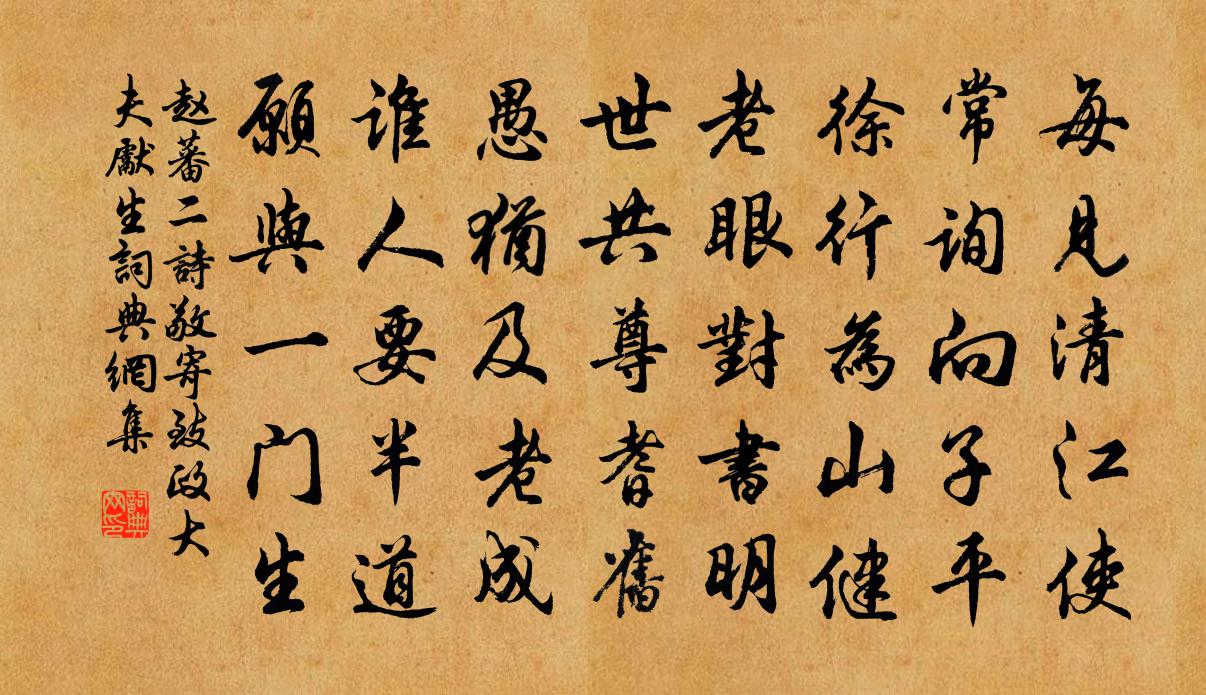 每見清江使
常询向子平
徐行為山健
老眼對書明
世共尊耆舊
愚猶及老成
谁人要半道
願與一门生
赵蕃二詩敬寄致政大
夫獻生詞典網集
詞典
网印